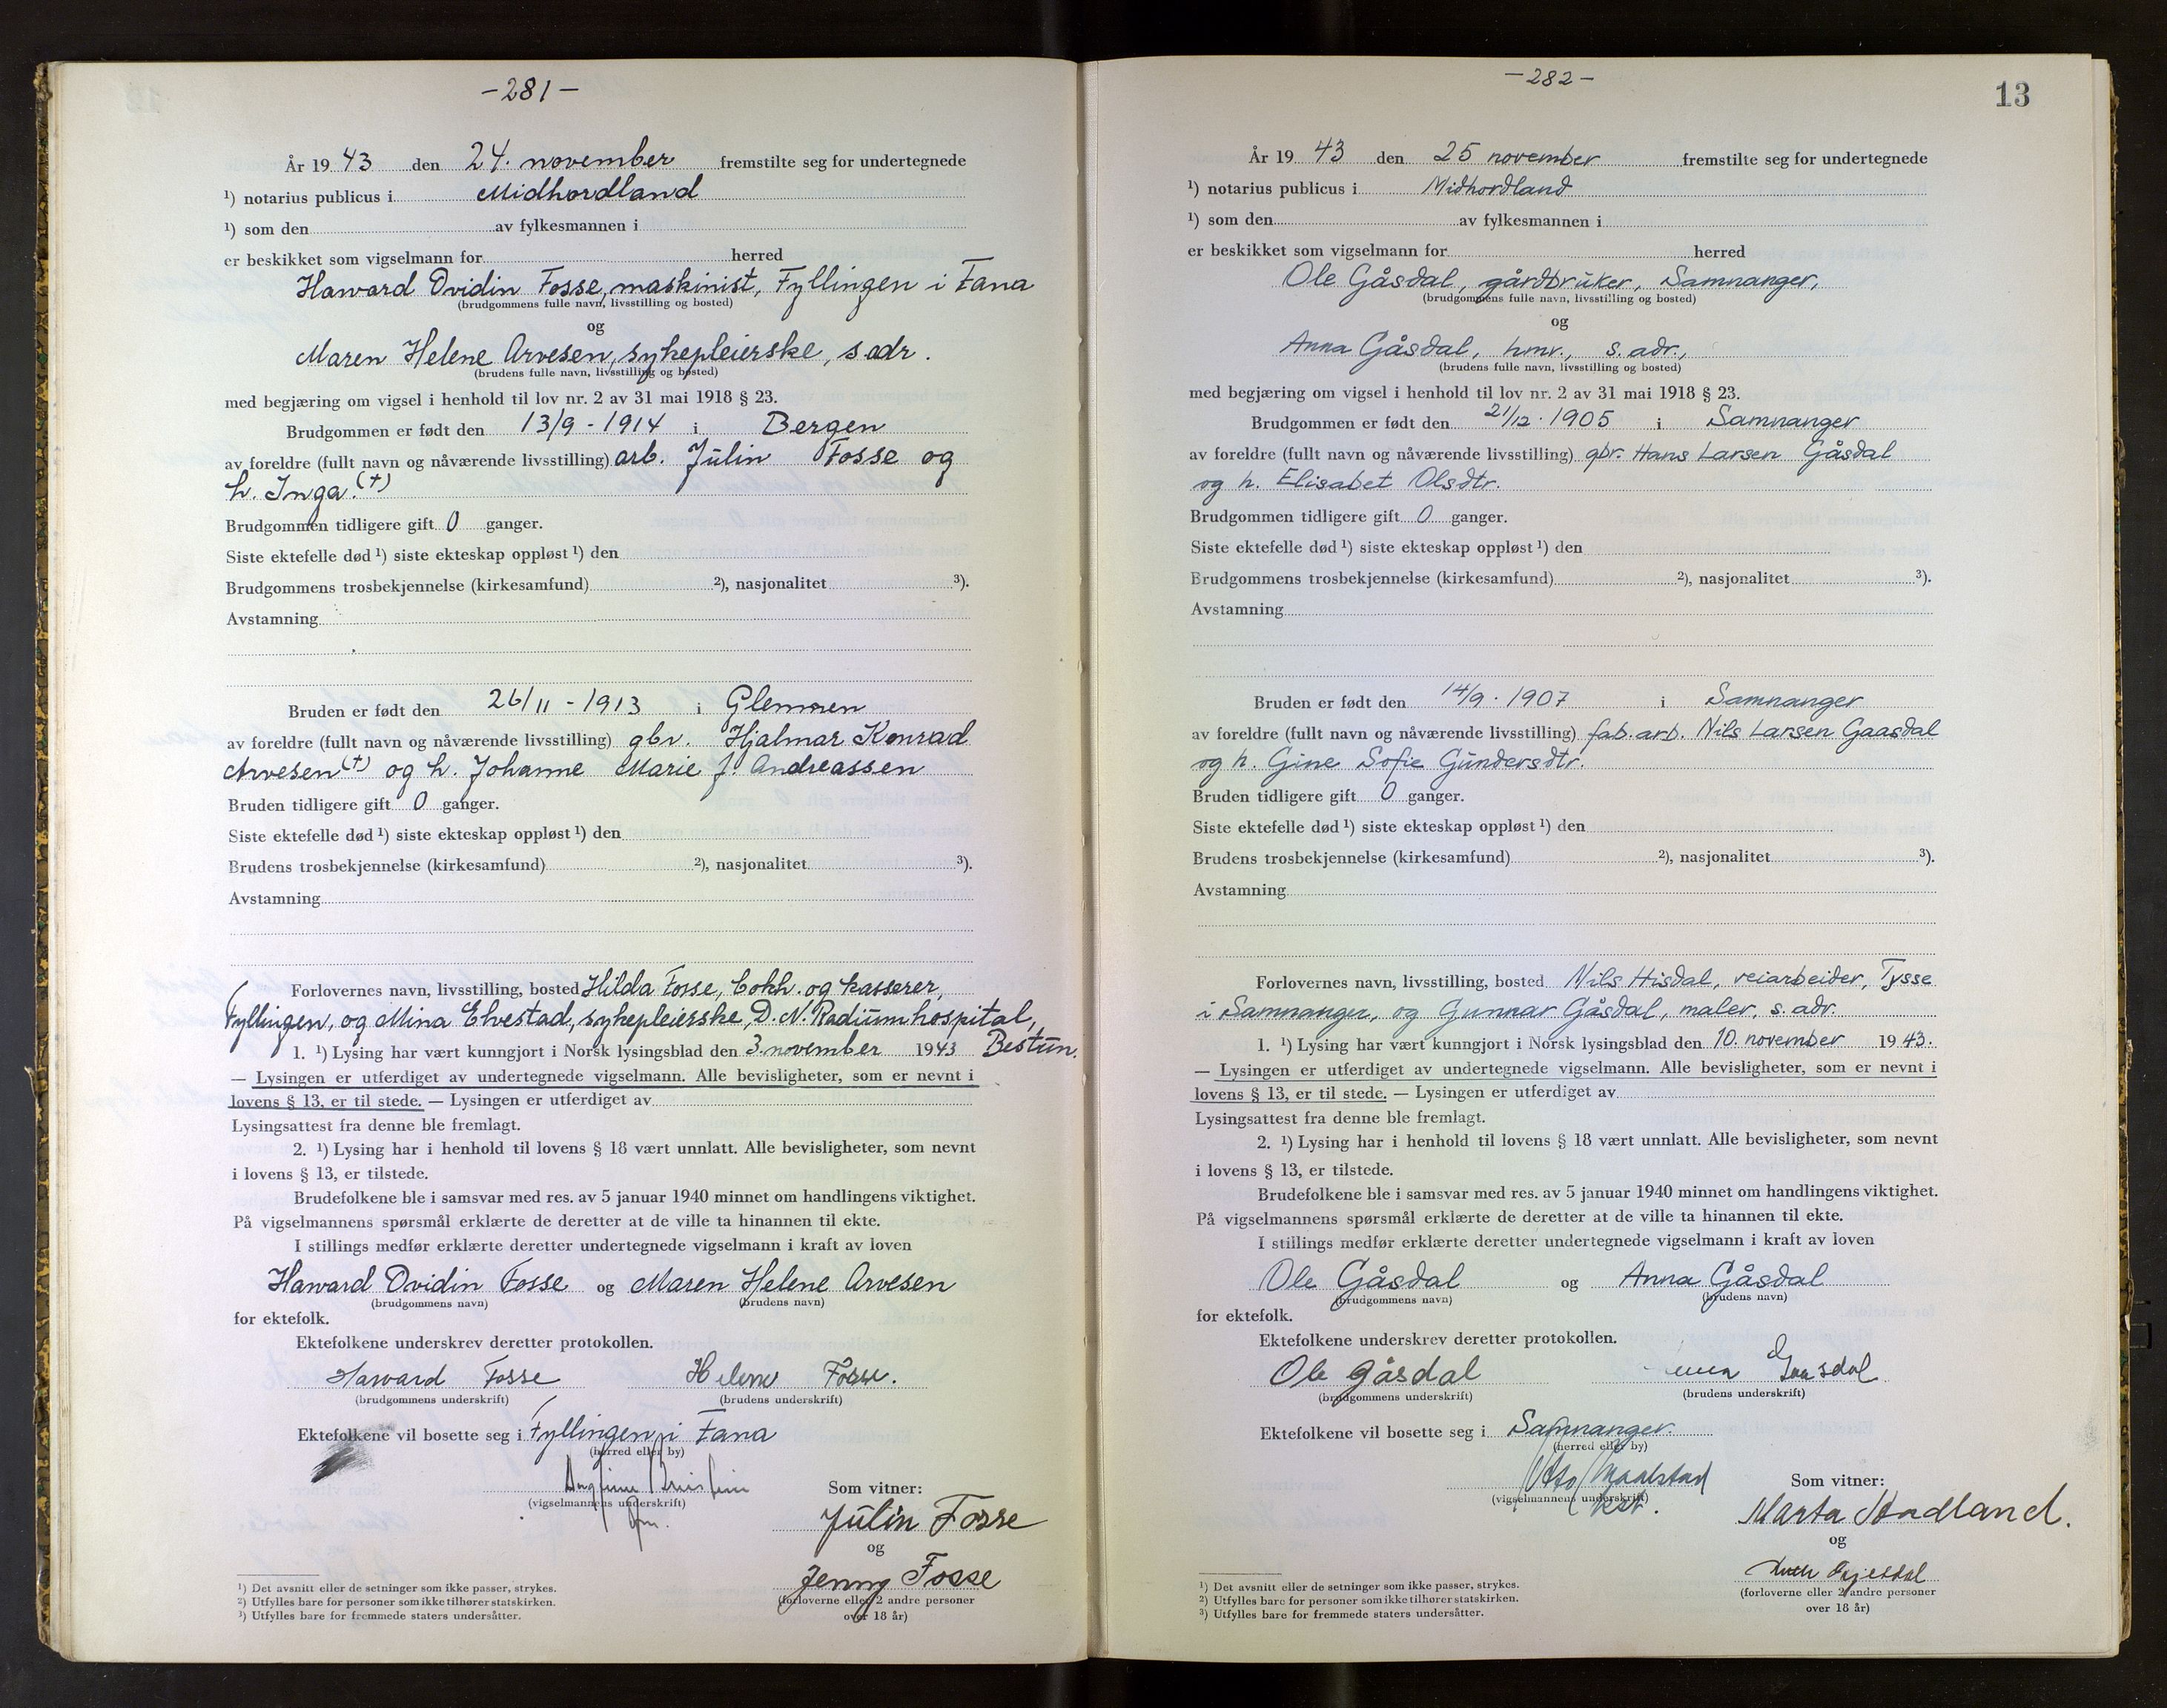 -281-
År 1943 den 24. november fremstilte seg for undertegnede
¹) notarius publicus i Midhordland
¹) som den av fylkesmannen i
er beskikket som vigselmann for herred
Haward Ovidin Fosse, maskinist, Fyllingen i Fana
(brudgommens fulle navn, livsstilling og bosted)
og
Maren Helene Arvesen, sykepleierske, s. adr.
(brudens fulle navn, livsstilling og bosted)
med begjæring om vigsel i henhold til lov nr. 2 av 31 mai 1918 § 23.
Brudgommen er født den 13/9 - 1914 i Bergen
av foreldre (fullt navn og nåværende livsstilling) arb. Julin Fosse og
h. Inga (+)
Brudgommen tidligere gift 0 ganger.
Siste ektefelle død ¹) siste ekteskap oppløst ¹) den
Brudgommens trosbekjennelse (kirkesamfund) ²), nasjonalitet ³).
Avstamning
Bruden er født den 26/11 - 1913 i Glemmen
av foreldre (fullt navn og nåværende livsstilling) gbr. Hjalmar Konrad
Arvesen (+) og h. Johanne Marie f. Andreassen
Bruden tidligere gift 0 ganger.
Siste ektefelle død ¹) siste ekteskap oppløst ¹) den
Brudens trosbekjennelse (kirkesamfund) ²), nasjonalitet ³).
Avstamning
Forlovernes navn, livsstilling, bosted Hilda Fosse, bokh. og kasserer,
Fyllingen, og Mina Elvestad, sykepleierske, D. N. Radiumhospital,
1. ¹) Lysing har vært kunngjort i Norsk lysingsblad den 3. november 1943 Bestun.
— Lysingen er utferdiget av undertegnede vigselmann. Alle bevisligheter, som er nevnt i
lovens § 13, er til stede. — Lysingen er utferdiget av
Lysingsattest fra denne ble fremlagt.
2. ¹) Lysing har i henhold til lovens § 18 vært unnlatt. Alle bevisligheter, som nevnt
i lovens § 13, er tilstede.
Brudefolkene ble i samsvar med res. av 5 januar 1940 minnet om handlingens viktighet.
På vigselmannens spørsmål erklærte de deretter at de ville ta hinannen til ekte.
I stillings medfør erklærte deretter undertegnede vigselmann i kraft av loven
Haward Ovidin Fosse og Maren Helene Arvesen
(brudgommens navn) (brudens navn)
for ektefolk.
Ektefolkene underskrev deretter protokollen.
Haward Fosse Helene Fosse.
(brudgommens underskrift) (brudens underskrift)
Ektefolkene vil bosette seg i Fyllingen i Fana
(herred eller by)
(vigselmannens underskrift)
Som vitner:
Julin Fosse
og
Jenny Fosse
(forloverne eller 2 andre personer
over 18 år)
¹) Det avsnitt eller de setninger som ikke passer, strykes.
²) Utfylles bare for personer som ikke tilhører statskirken.
³) Utfylles bare for fremmede staters undersåtter.
-282-
13
År 1943 den 25 november fremstilte seg for undertegnede
¹) notarius publicus i Midhordland
¹) som den av fylkesmannen i
er beskikket som vigselmann for herred
Ole Gåsdal, gårdbruker, Samnanger,
(brudgommens fulle navn, livsstilling og bosted)
og
Anna Gåsdal, hmv., s. adr.,
(brudens fulle navn, livsstilling og bosted)
med begjæring om vigsel i henhold til lov nr. 2 av 31 mai 1918 § 23.
Brudgommen er født den 21/12 . 1905 i Samnanger
av foreldre (fullt navn og nåværende livsstilling) gbr. Hans Larsen Gåsdal
og h. Elisabet Olsdtr.
Brudgommen tidligere gift 0 ganger.
Siste ektefelle død ¹) siste ekteskap oppløst ¹) den
Brudgommens trosbekjennelse (kirkesamfund) ²), nasjonalitet ³).
Avstamning
Bruden er født den 14/9 . 1907 i Samnanger
av foreldre (fullt navn og nåværende livsstilling) fab.arb. Nils Larsen Gaasdal
og h. Gine Sofie Gundersdtr.
Bruden tidligere gift 0 ganger.
Siste ektefelle død ¹) siste ekteskap oppløst ¹) den
Brudens trosbekjennelse (kirkesamfund) ²), nasjonalitet ³).
Avstamning
Forlovernes navn, livsstilling, bosted Nils Hisdal, veiarbeider, Tysse
i Samnanger, og Gunnar Gåsdal, maler, s. adr.
1. ¹) Lysing har vært kunngjort i Norsk lysingsblad den 10. november 1943.
— Lysingen er utferdiget av undertegnede vigselmann. Alle bevisligheter, som er nevnt i
lovens § 13, er til stede. — Lysingen er utferdiget av
Lysingsattest fra denne ble fremlagt.
2. ¹) Lysing har i henhold til lovens § 18 vært unnlatt. Alle bevisligheter, som nevnt
i lovens § 13, er tilstede.
Brudefolkene ble i samsvar med res. av 5 januar 1940 minnet om handlingens viktighet.
På vigselmannens spørsmål erklærte de deretter at de ville ta hinannen til ekte.
I stillings medfør erklærte deretter undertegnede vigselmann i kraft av loven
Ole Gåsdal og Anna Gåsdal
(brudgommens navn) (brudens navn)
for ektefolk.
Ektefolkene underskrev deretter protokollen.
Ole Gåsdal Gaasdal
(brudgommens underskrift) (brudens underskrift)
Ektefolkene vil bosette seg i Samnanger.
(herred eller by)
Otto
(vigselmannens underskrift)
Som vitner:
Marta
og
(forloverne eller 2 andre personer
over 18 år)
¹) Det avsnitt eller de setninger som ikke passer, strykes.
²) Utfylles bare for personer som ikke tilhører statskirken.
³) Utfylles bare for fremmede staters undersåtter.